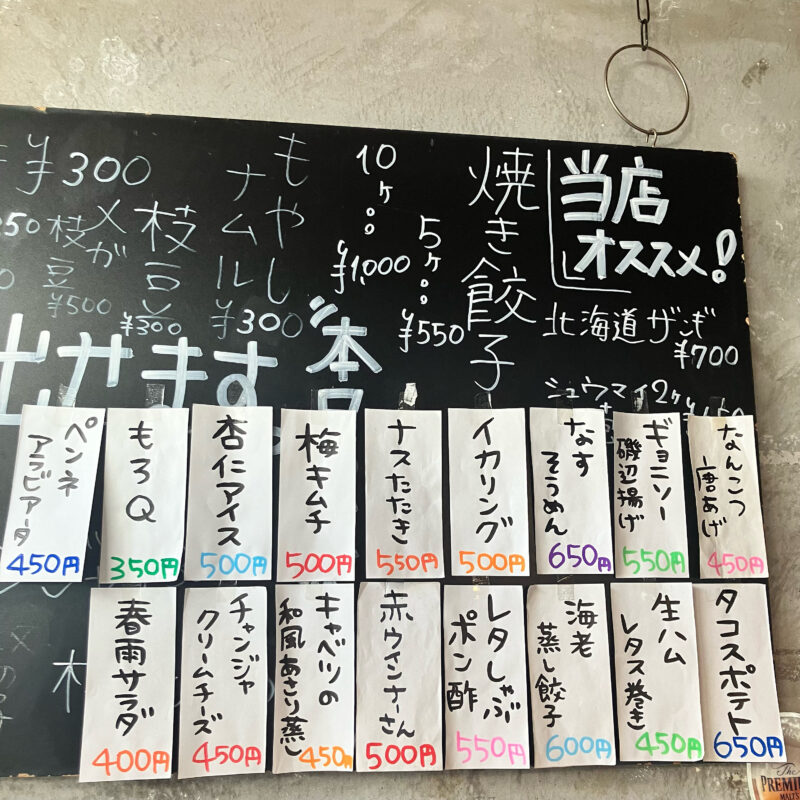 当店
オススメ!
北海道ザンギ
¥700
シュウマイ2ヶ
焼き餃子
5ヶ。。
¥550
10ヶ。。
¥1,000
もやし
ナムル
¥300
枝豆
¥300
枝豆
¥500
¥300
本日
出せます。
なんこつ
唐あげ
450円
ギョニソー
磯辺揚げ
550円
なす
そうめん
650円
イカリング
500円
ナスたたき
550円
梅キムチ
500円
杏仁アイス
500円
もろQ
350円
ペンネ
アラビアータ
450円
タコスポテト
650円
生ハム
レタス巻き
450円
海老
蒸し餃子
600円
レタしゃぶ
ポン酢
550円
赤ウインナーさん
500円
キャベツの
和風あさり蒸し
450円
チャンジャ
クリームチーズ
450円
春雨サラダ
400円
The
PREMIU
MALTS